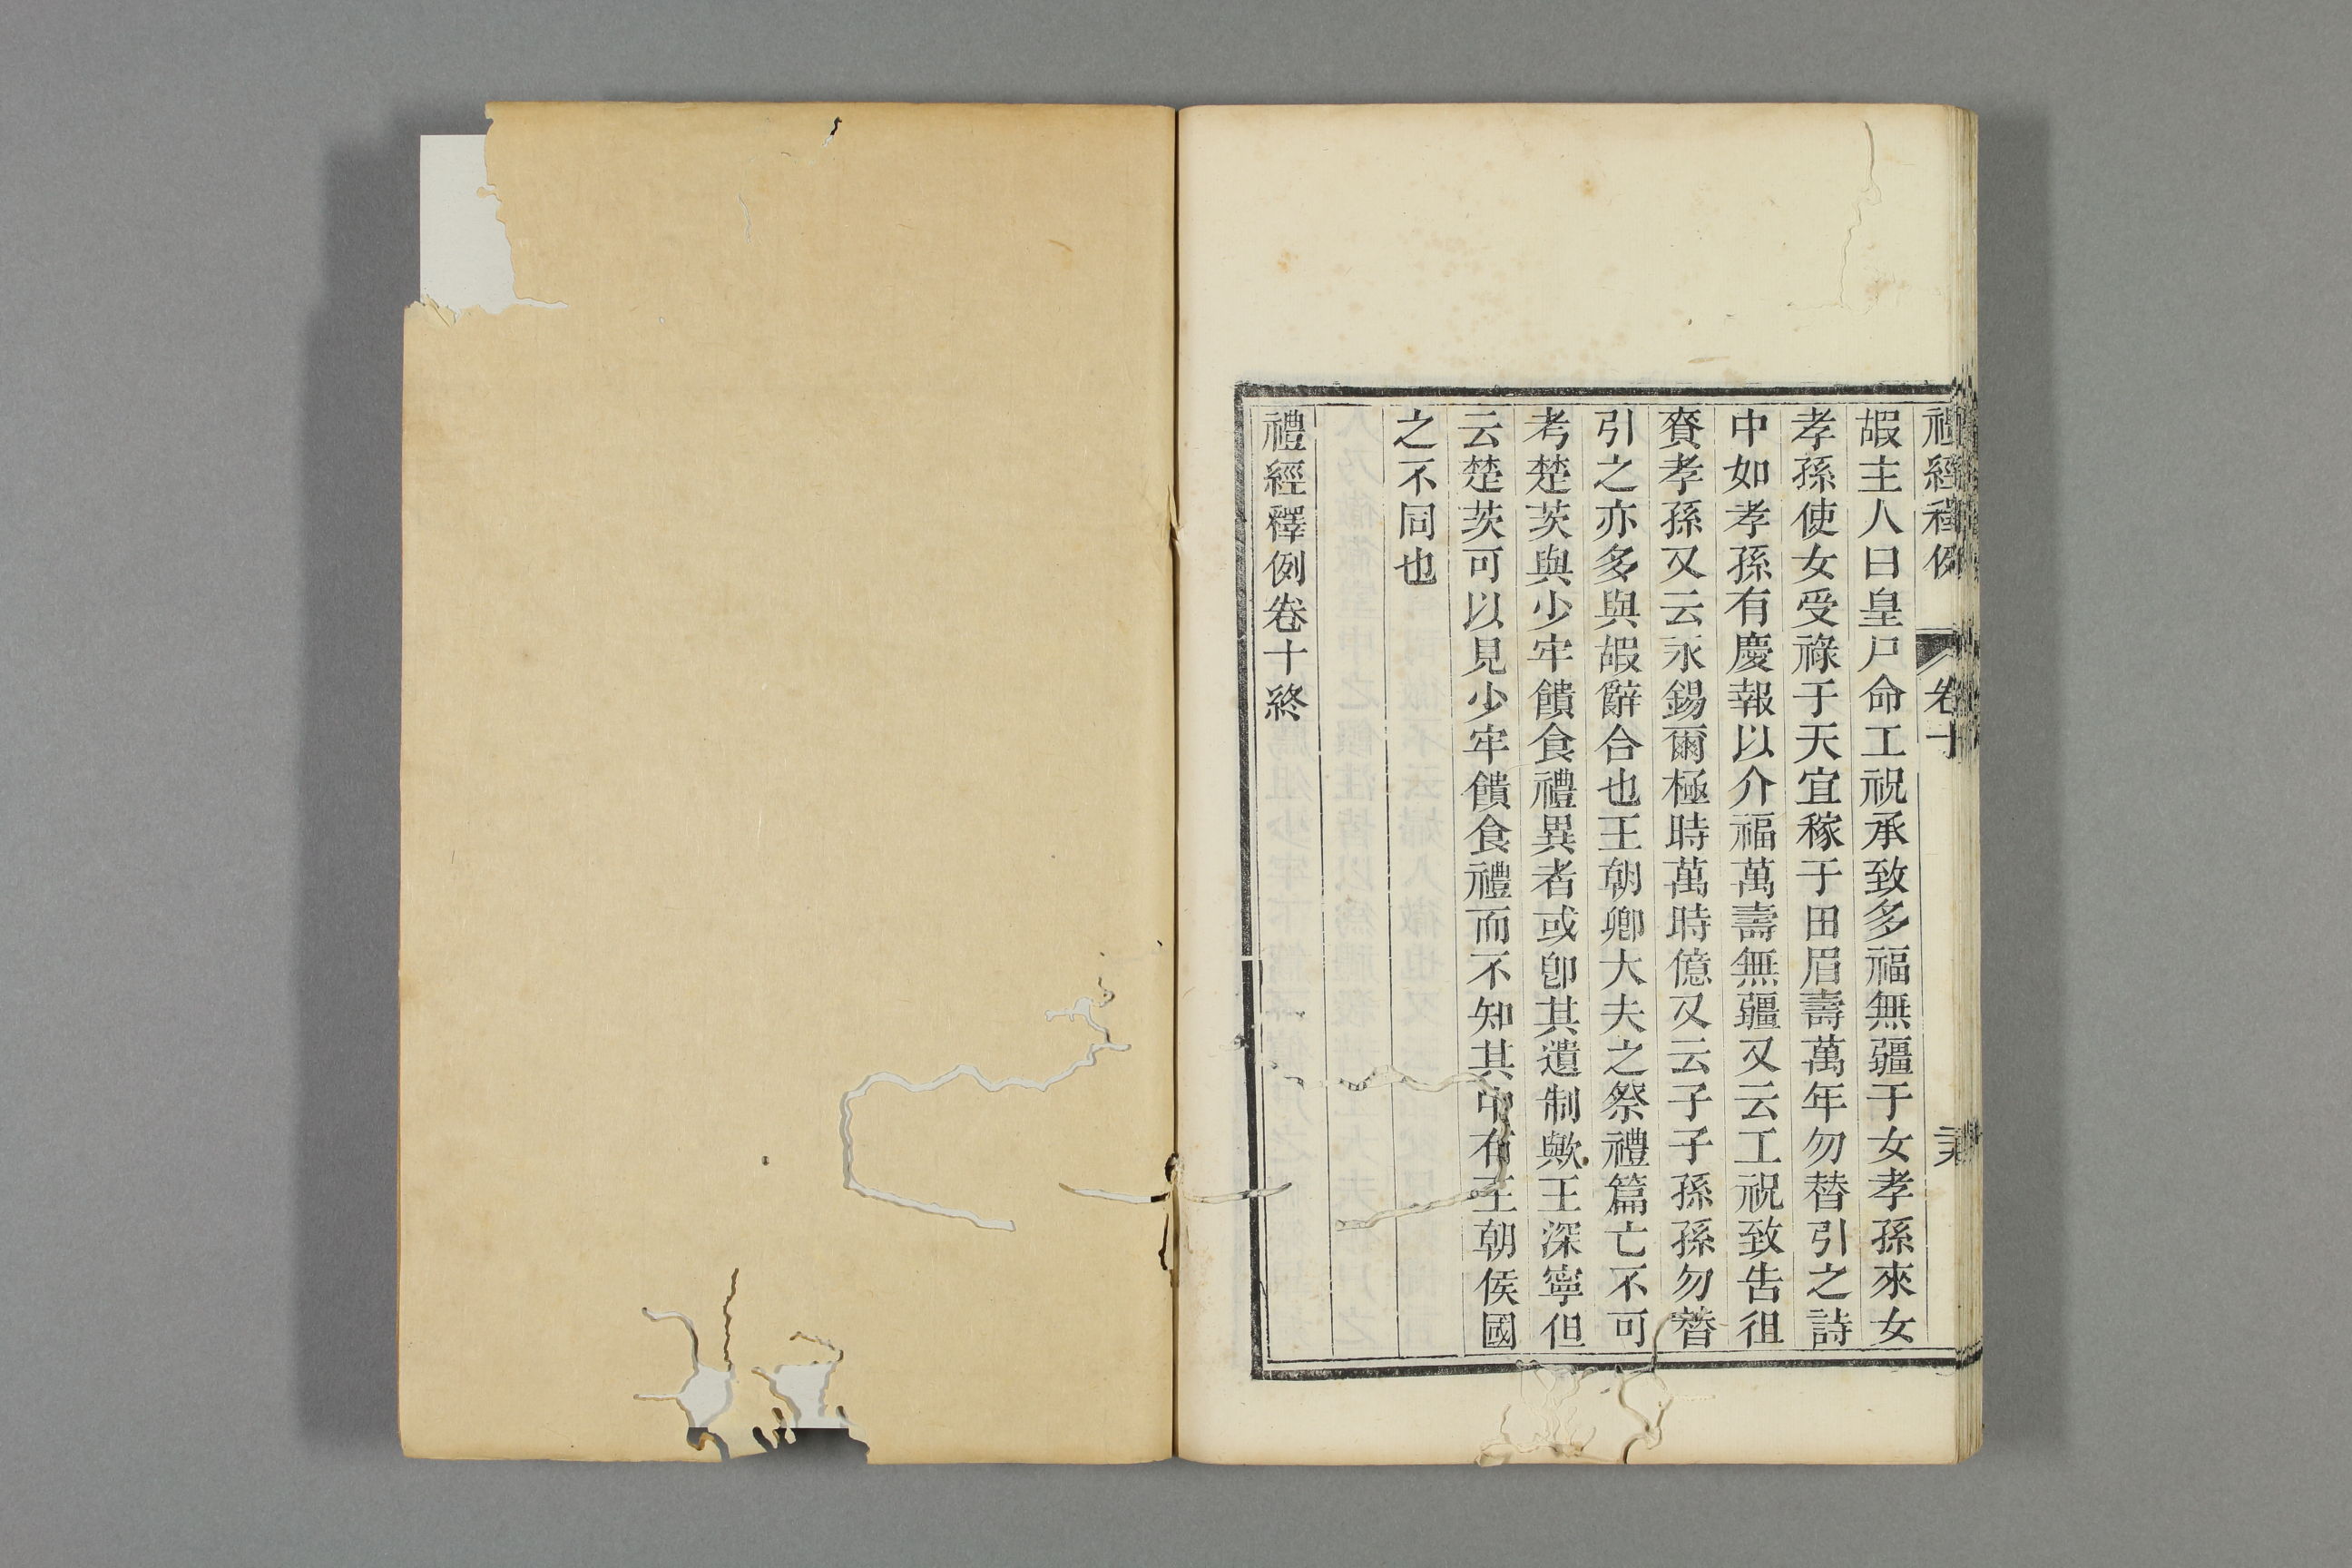 禮經釋例
卷十
嘏主人曰皇尸命工祝承致多福無疆于女孝孫來女
孝孫使女受祿于天宜稼于田眉壽萬年勿替引之詩
中如孝孫有慶報以介福萬壽無疆又云工祝致告徂
賚孝孫又云永錫爾極時萬時億又云子子孫孫勿替
引之亦多與嘏辭合也王朝卿大夫之祭禮篇亡不可
考楚茨與少牢饋食禮異者或卽其遺制歟王深寧但
云楚茨可以見少牢饋食禮而不知其中有王朝侯國
之不同也
禮經釋例卷十終